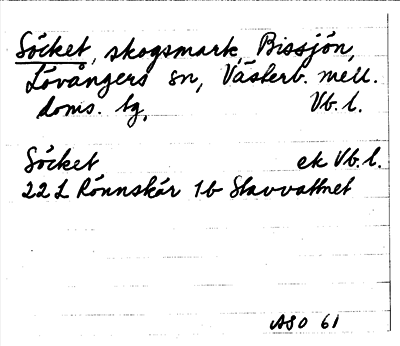 Söcket, skogsmark, Bissjön,
Lövångers sn, Västerb. mell.
doms. tg. Vb. l.
Söcket ek Vb. l.
22 L Rönnskär 1 b Stavvattnet
ASO 61